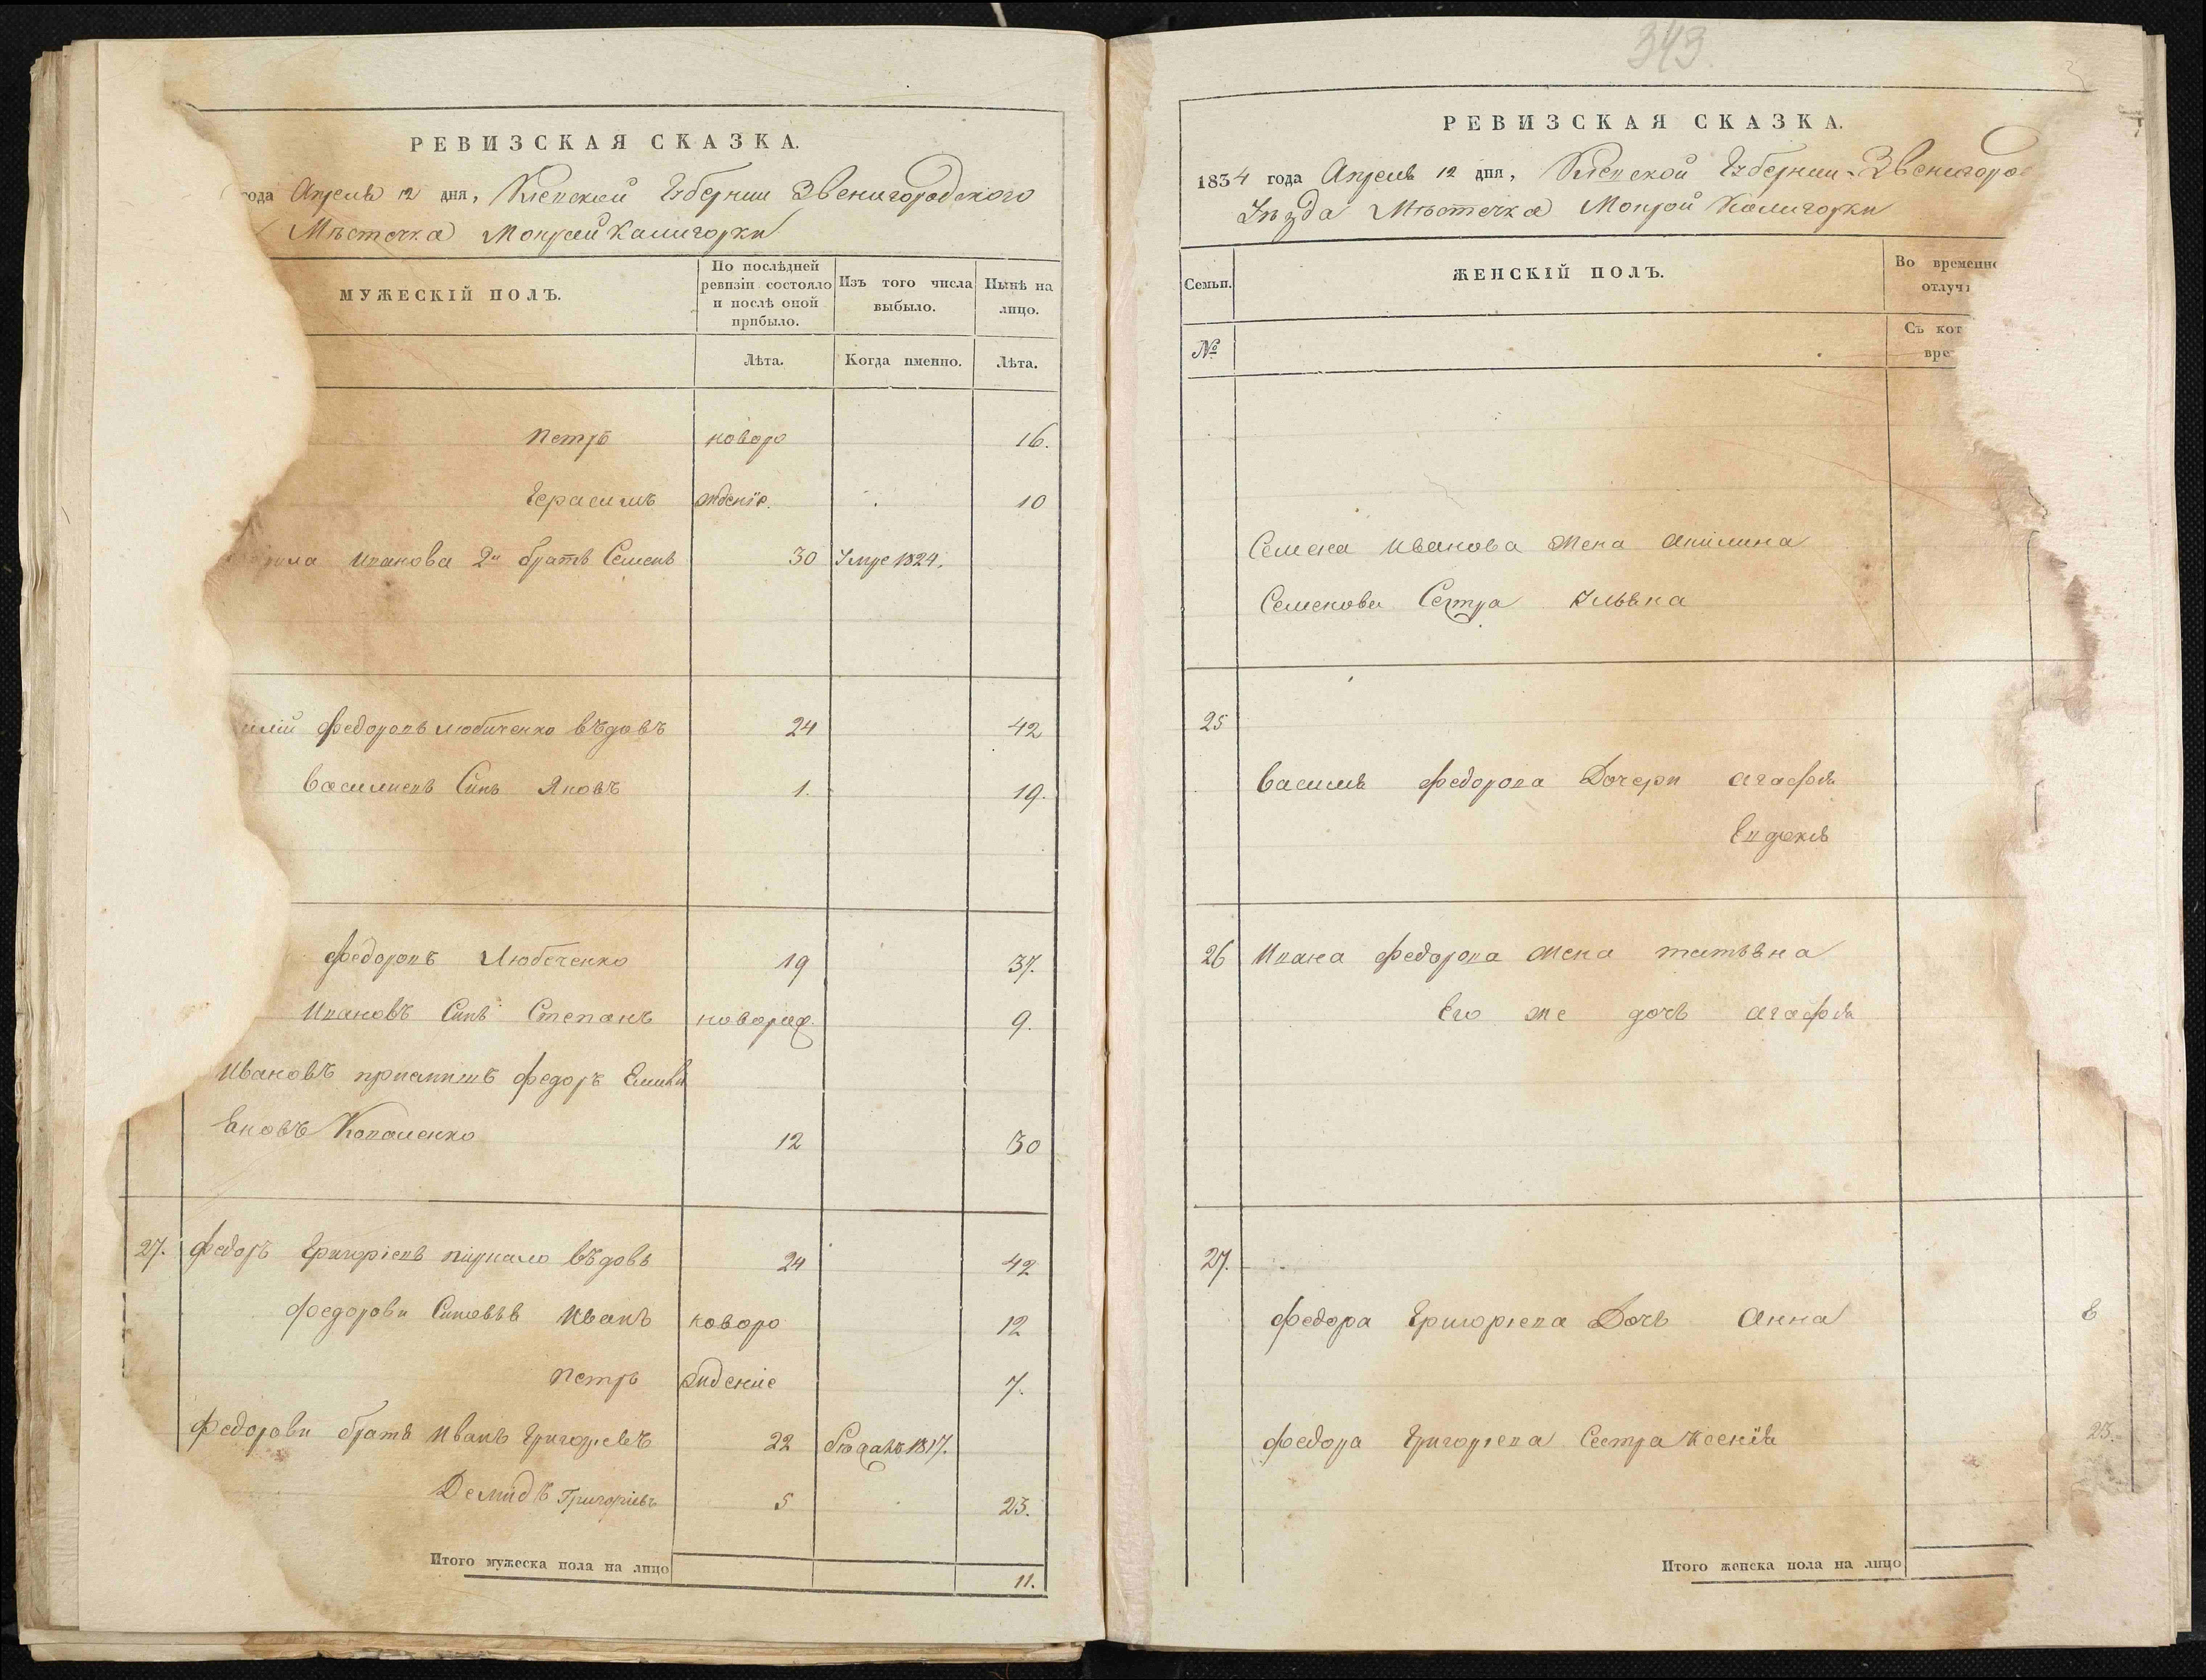 РЕВИЗСКАЯ СКАЗКА.
года Апреля 12 дня, Кіевской Губерніи Звенигородского
Мѣстечка Мокрой Калигорки
МУЖЕСКІЙ ПОЛЪ.
По послѣдней ревизіи состояло и послѣ оной прибыло.
Изъ того числа выбыло.
Нынѣ на лицо.
Лѣта.
Когда именно.
Лѣта.
Петръ новоро 16.
Герасимъ жденіе. 10
Иванова 2й братъ Семенъ 30 Умре 1824.
Федоровъ Любиченко въдовъ 24 42
Василиевъ Синъ Яковъ 1. 19.
Федоровъ Любеченко 19 37.
Ивановъ Синъ Степанъ новорож. 9.
Ивановъ приемишъ Федоръ Емилі
яновъ Коваленко 12 30
27. Федоръ Григоріевъ въдовъ 24 42
Федорови Синовья Иванъ новоро 12
Петръ жденіе 7.
Федорови братъ Иванъ Григориевъ 22 1817.
Демидъ Григоріевъ 5 23.
Итого мужеска пола на лицо 11.
343.
РЕВИЗСКАЯ СКАЗКА.
1834 года Апреля 12 дня, Кіевской Губерніи Звенигоро
Уѣзда Мѣстечка Мокрой Калигорки
Семьи.
ЖЕНСКІЙ ПОЛЪ.
Во временно
отлуч
№
Съ кот
вре
Семена Иванова Жена Акилина
Семенова Сестра Ульяна
25
Василя Федорова Дочери Агафия
Евдокия
26 Ивана Федорова Жена Татьяна
Его же дочь Агафия
27.
Федора Григориева Дочь Анна 8
Федора Григориева Сестра Ксения 23.
Итого женска пола на лицо